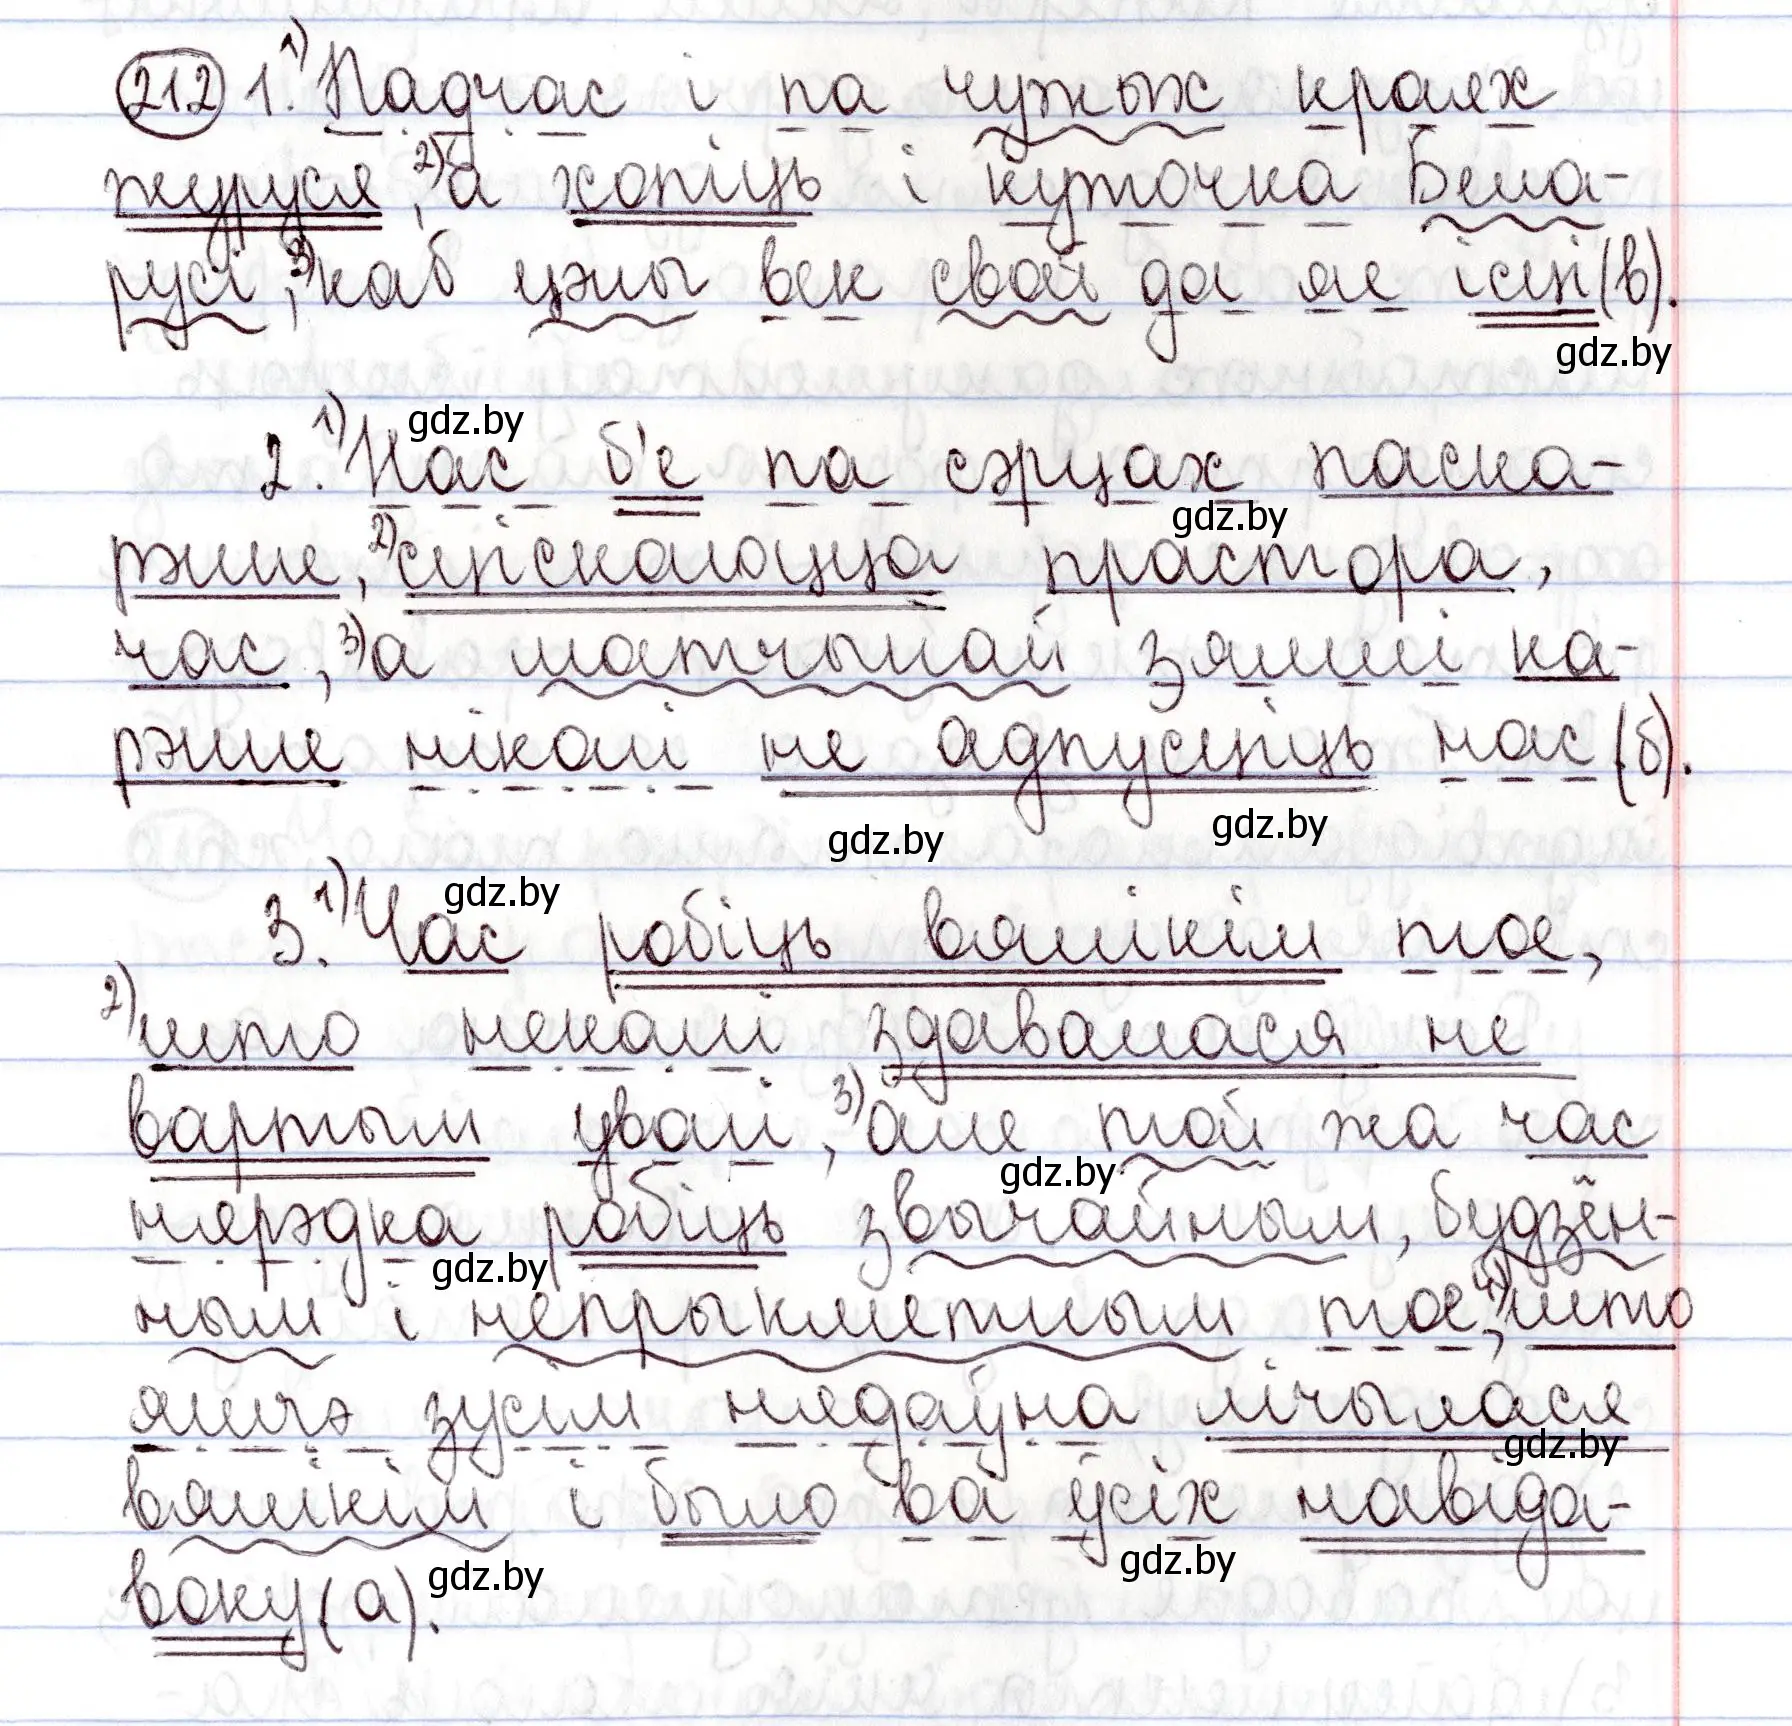 212 1. 1) Падчас і па чужых краях
журуся, 2) а хопіць і куточка Бела-
русі, 3) каб цэлы век свой да яе ісці (в).
gdz.by
gdz.by
2. 1) Нас б'е па сэрцах паска-
gdz.by
рэнне, 2) сціскаюцца прастора,
час, 3) а матчынай зямлі ка-
рэнне ніколі не адпусціць нас (б).
gdz.by gdz.by
gdz.by
3. 1) Час робіць вялікім тое,
2) што некалі здавалася не
вартым увагі, 3) але той жа час
gdz.by
нярэдка робіць звычайным, будзён-
gdz.by
ным і непрыкметным тое, 4) што
яшчэ зусім нядаўна лічылася
gdz.by
вялікім і было ва ўсіх навіда-
gdz.by
воку (а).
gdz.by